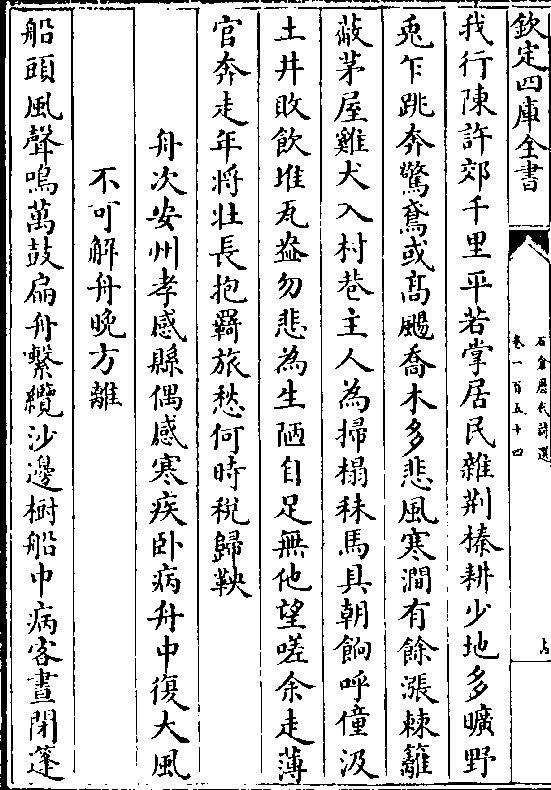 欽定四庫全書
石倉歷代詩選
卷一百五十四
我行陳許郊千里平若掌居民雜荆榛耕少地多曠野
兎乍跳奔驚鳶或髙颺喬木多悲風寒澗有餘漲棘籬
蔽茅屋雞犬入村巷主人為掃榻秣馬具朝餉呼僮汲
土井敗飲堆瓦盎勿悲為生陋自足無他望嗟余走薄
官奔走年將壯長抱羇旅愁何時稅歸鞅
舟次安州孝感縣偶感寒疾卧病舟中復大風
不可解舟晚方離
船頭風聲鳴萬鼓扁舟繫纜沙邊樹船中病客晝閉篷